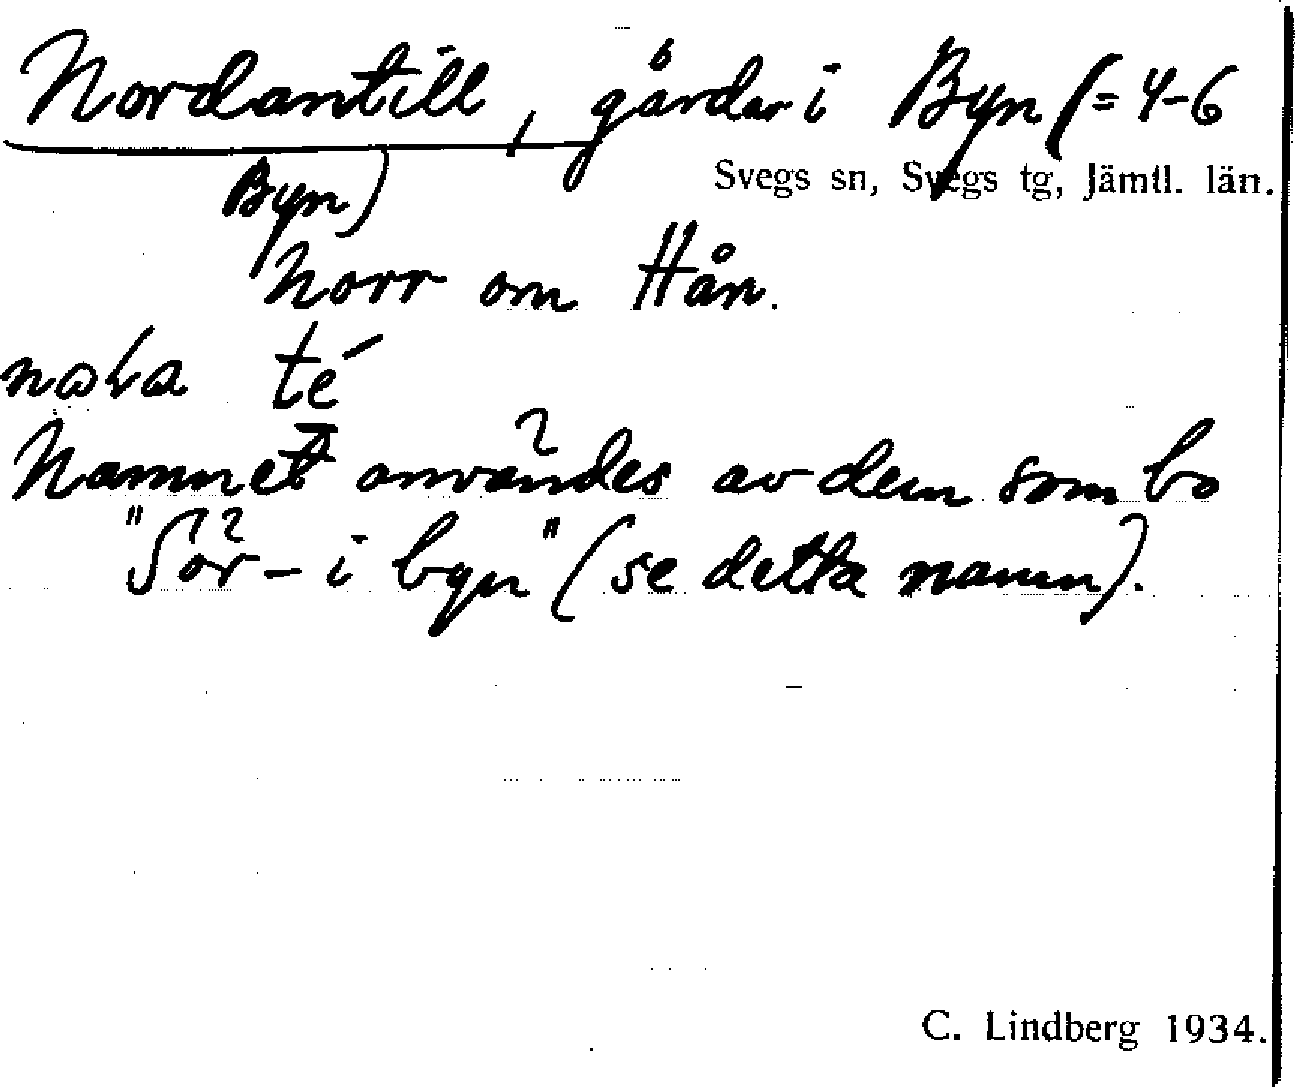 Nordantill, gårdar i Byn (= 4-6
Svegs sn, Svegs tg, Jämtl. län.
Byn)
Norr om Hån.
té
Namnet användes av dem som bo
"Sör-i byn" (se detta namn).
C. Lindberg 1934.